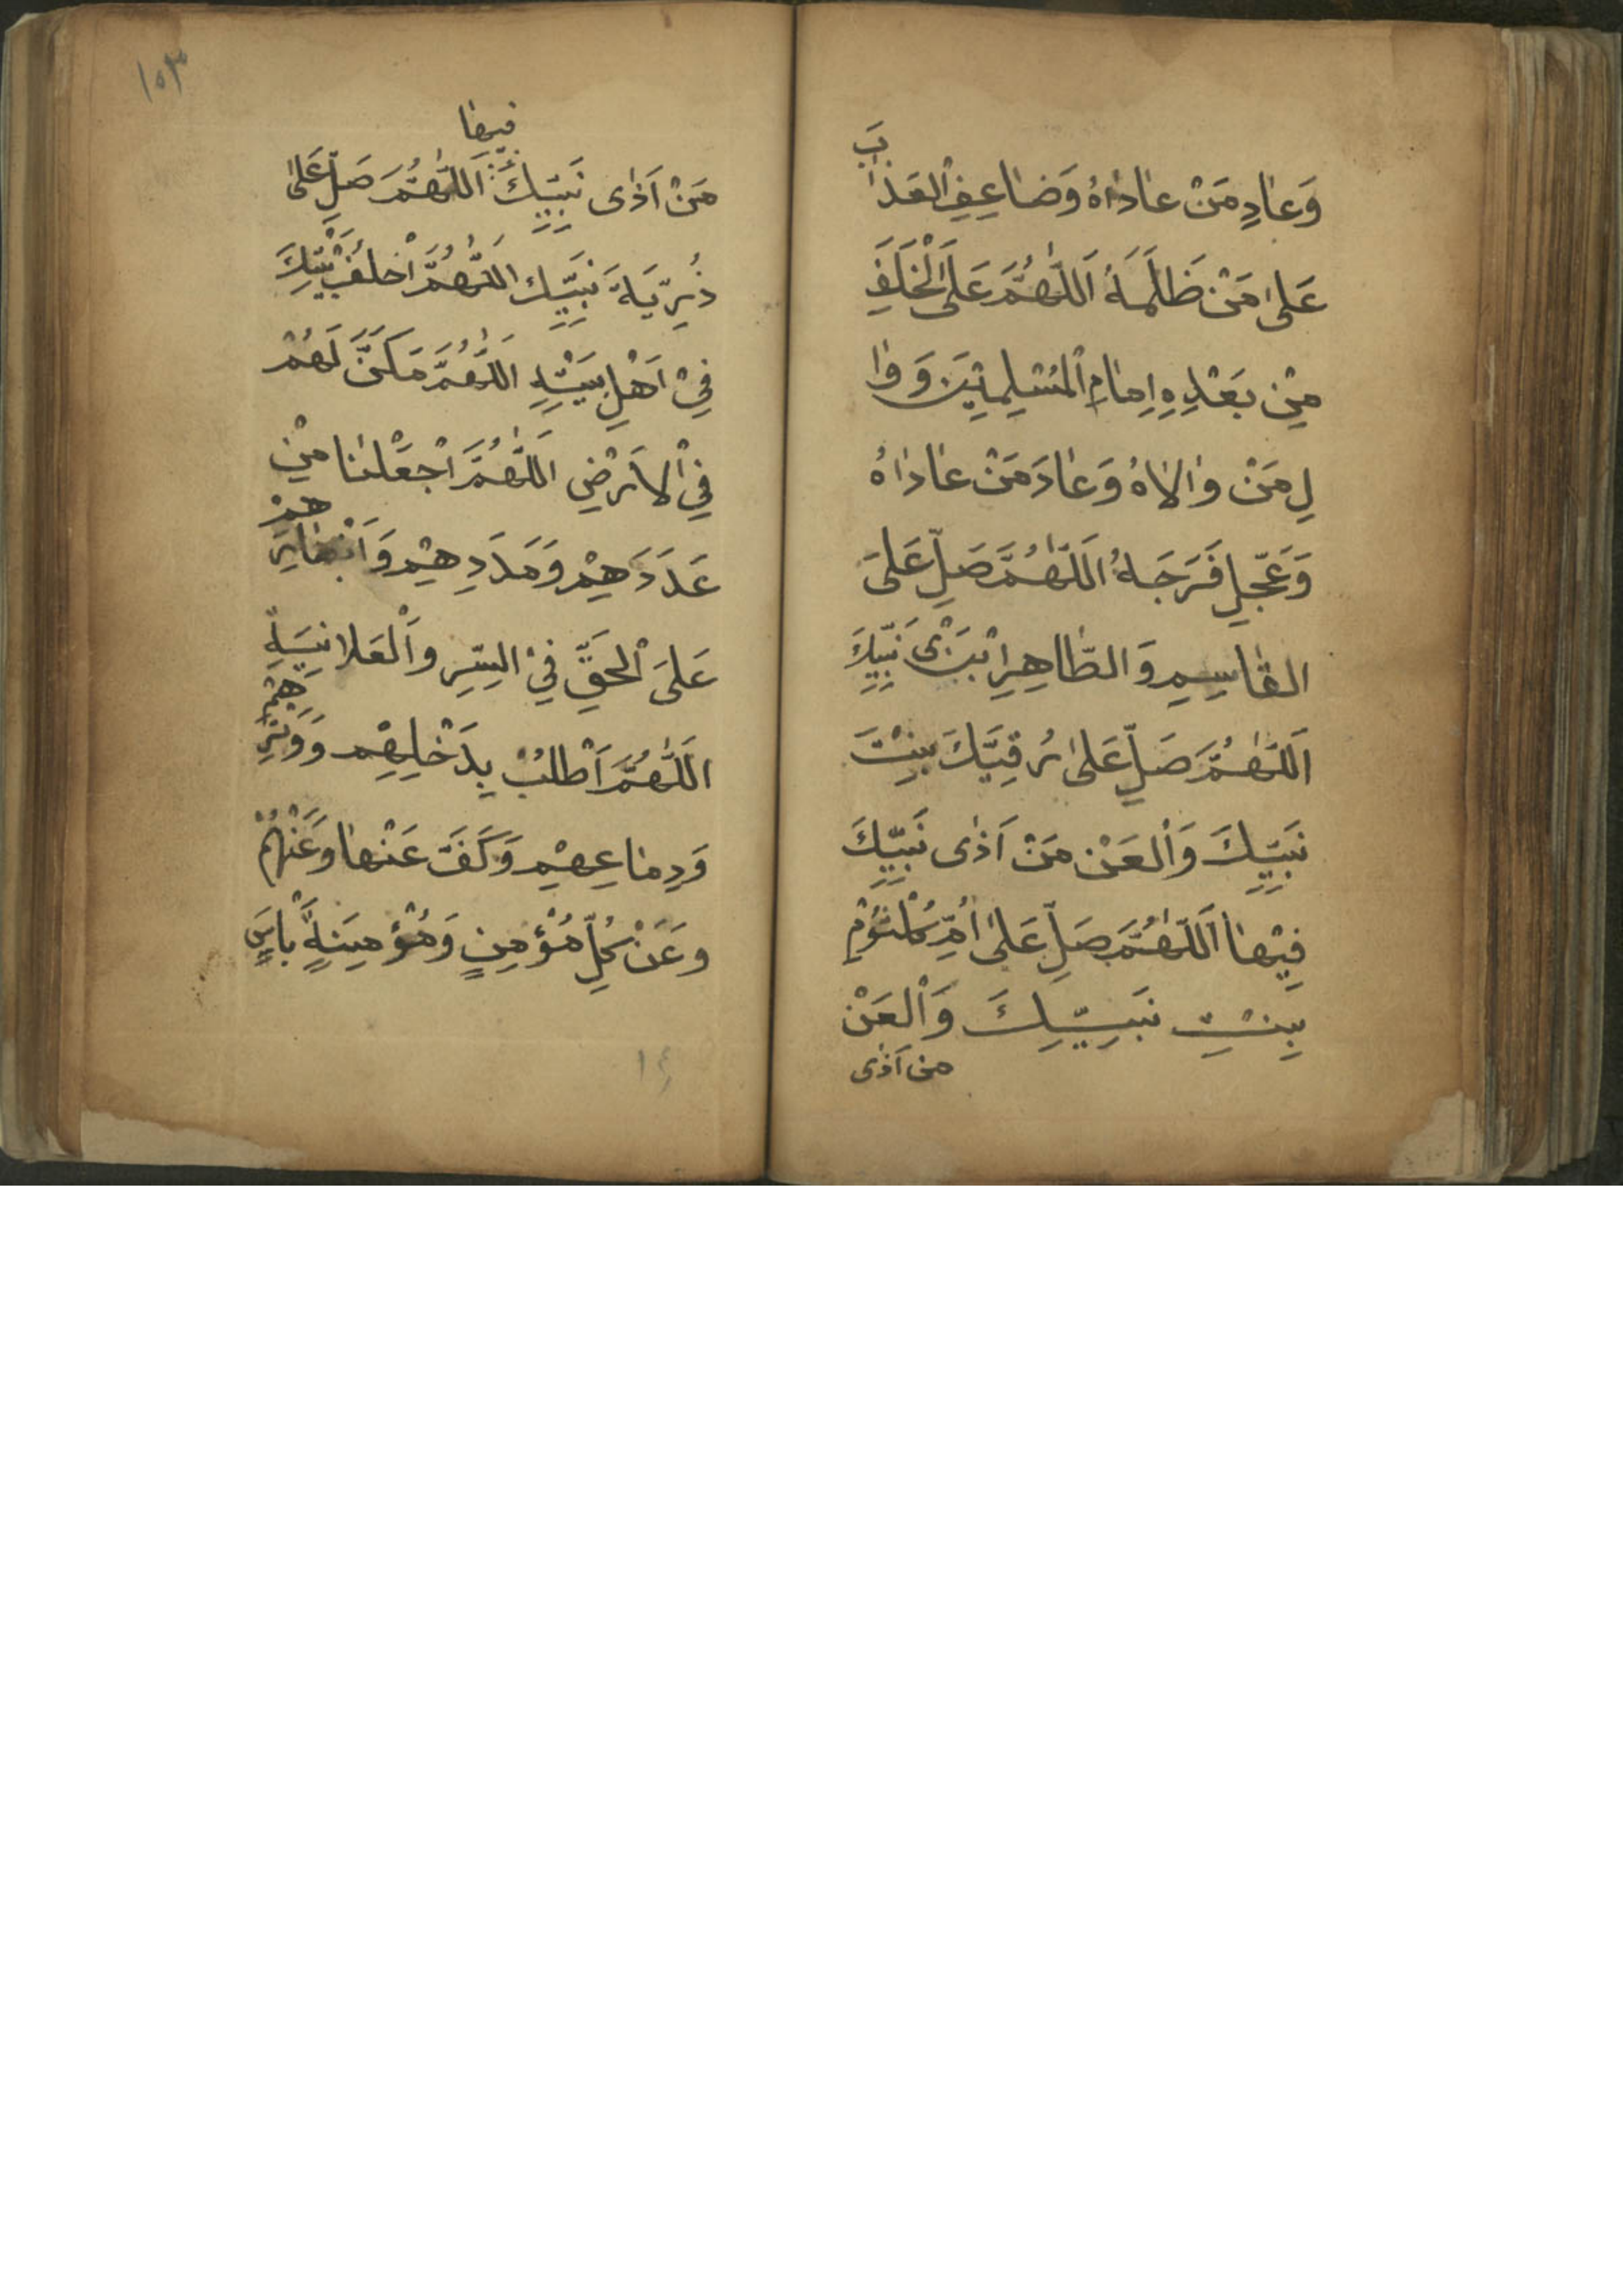 وَعٰادِ مَنْ عٰادٰاهُ وَضٰاعِفِ الْعَذٰابَ
عَلىٰ مَنْ ظَلَمَهُ اَللّٰهُمَّ عَلَى الْخَلَفِ
مِنْ بَعْدِهِ اِمٰامِ الْمُسْلِمِيْنَ وَ وٰا
لِ مَنْ وٰالاٰهُ وَعٰادَ مَنْ عٰادٰاهُ
وَعَجِّلِ فَرَجَهُ اَللّٰهُمَّ صَلِّ عَلىَ
القٰاسِمِ وَ الطّٰاهِرِ ابْنَىْ نَبِيِّكَ
اَللّٰهُمَّ صَلِّ عَلىٰ رُقِيَّكَ بِنْتَ
نَبِيِّكَ وَالْعَنْ مَنْ اَذٰى نَبِيِّكَ
فِيْهٰا اَللّٰهُمَّ صَلِّ عَلىٰ اُمِّ كُلْثُوْمِ
بِنْتِ نَبِيِّكَ وَالْعَنْ
من اَذٰى
١٥٣
فيهٰا
مَنْ اَذٰى نَبِيِّكَ اَللّٰهُمَّ صَلِّ عَلىٰ
ذُرِّيَةَ نَبِيِّك اللّٰهُمَّ اْخلُفْ نَبِيِّكَ
فِىْ اَهْلِ بَيْتِهِ اللّٰهُمَّ مَكَنَّ لَهُمْ
فِي الاَرْضِ اللّٰهُمَّ اجْعَلْنٰا مِنْ
عَدَدَهِمْ وَمَدَدِهِمْ وَاَنْصٰارِهِمْ
عَلىَ الْحَقِّ فِىْ السِّرِ وَالْعَلانِيَةِ
اللّٰهُمَّ اَطْلُبْ بِدَخْلِهِمْ وَوَتْرِهِمْ
وَدِمٰاءِهِمْ وَكَفَّ عَنْهٰا وَعَنْهُمْ
وَعَنْ كُلِّ مُؤْمِنٍ وَمُؤْمِنَةٍ بَاْسَ
١٤